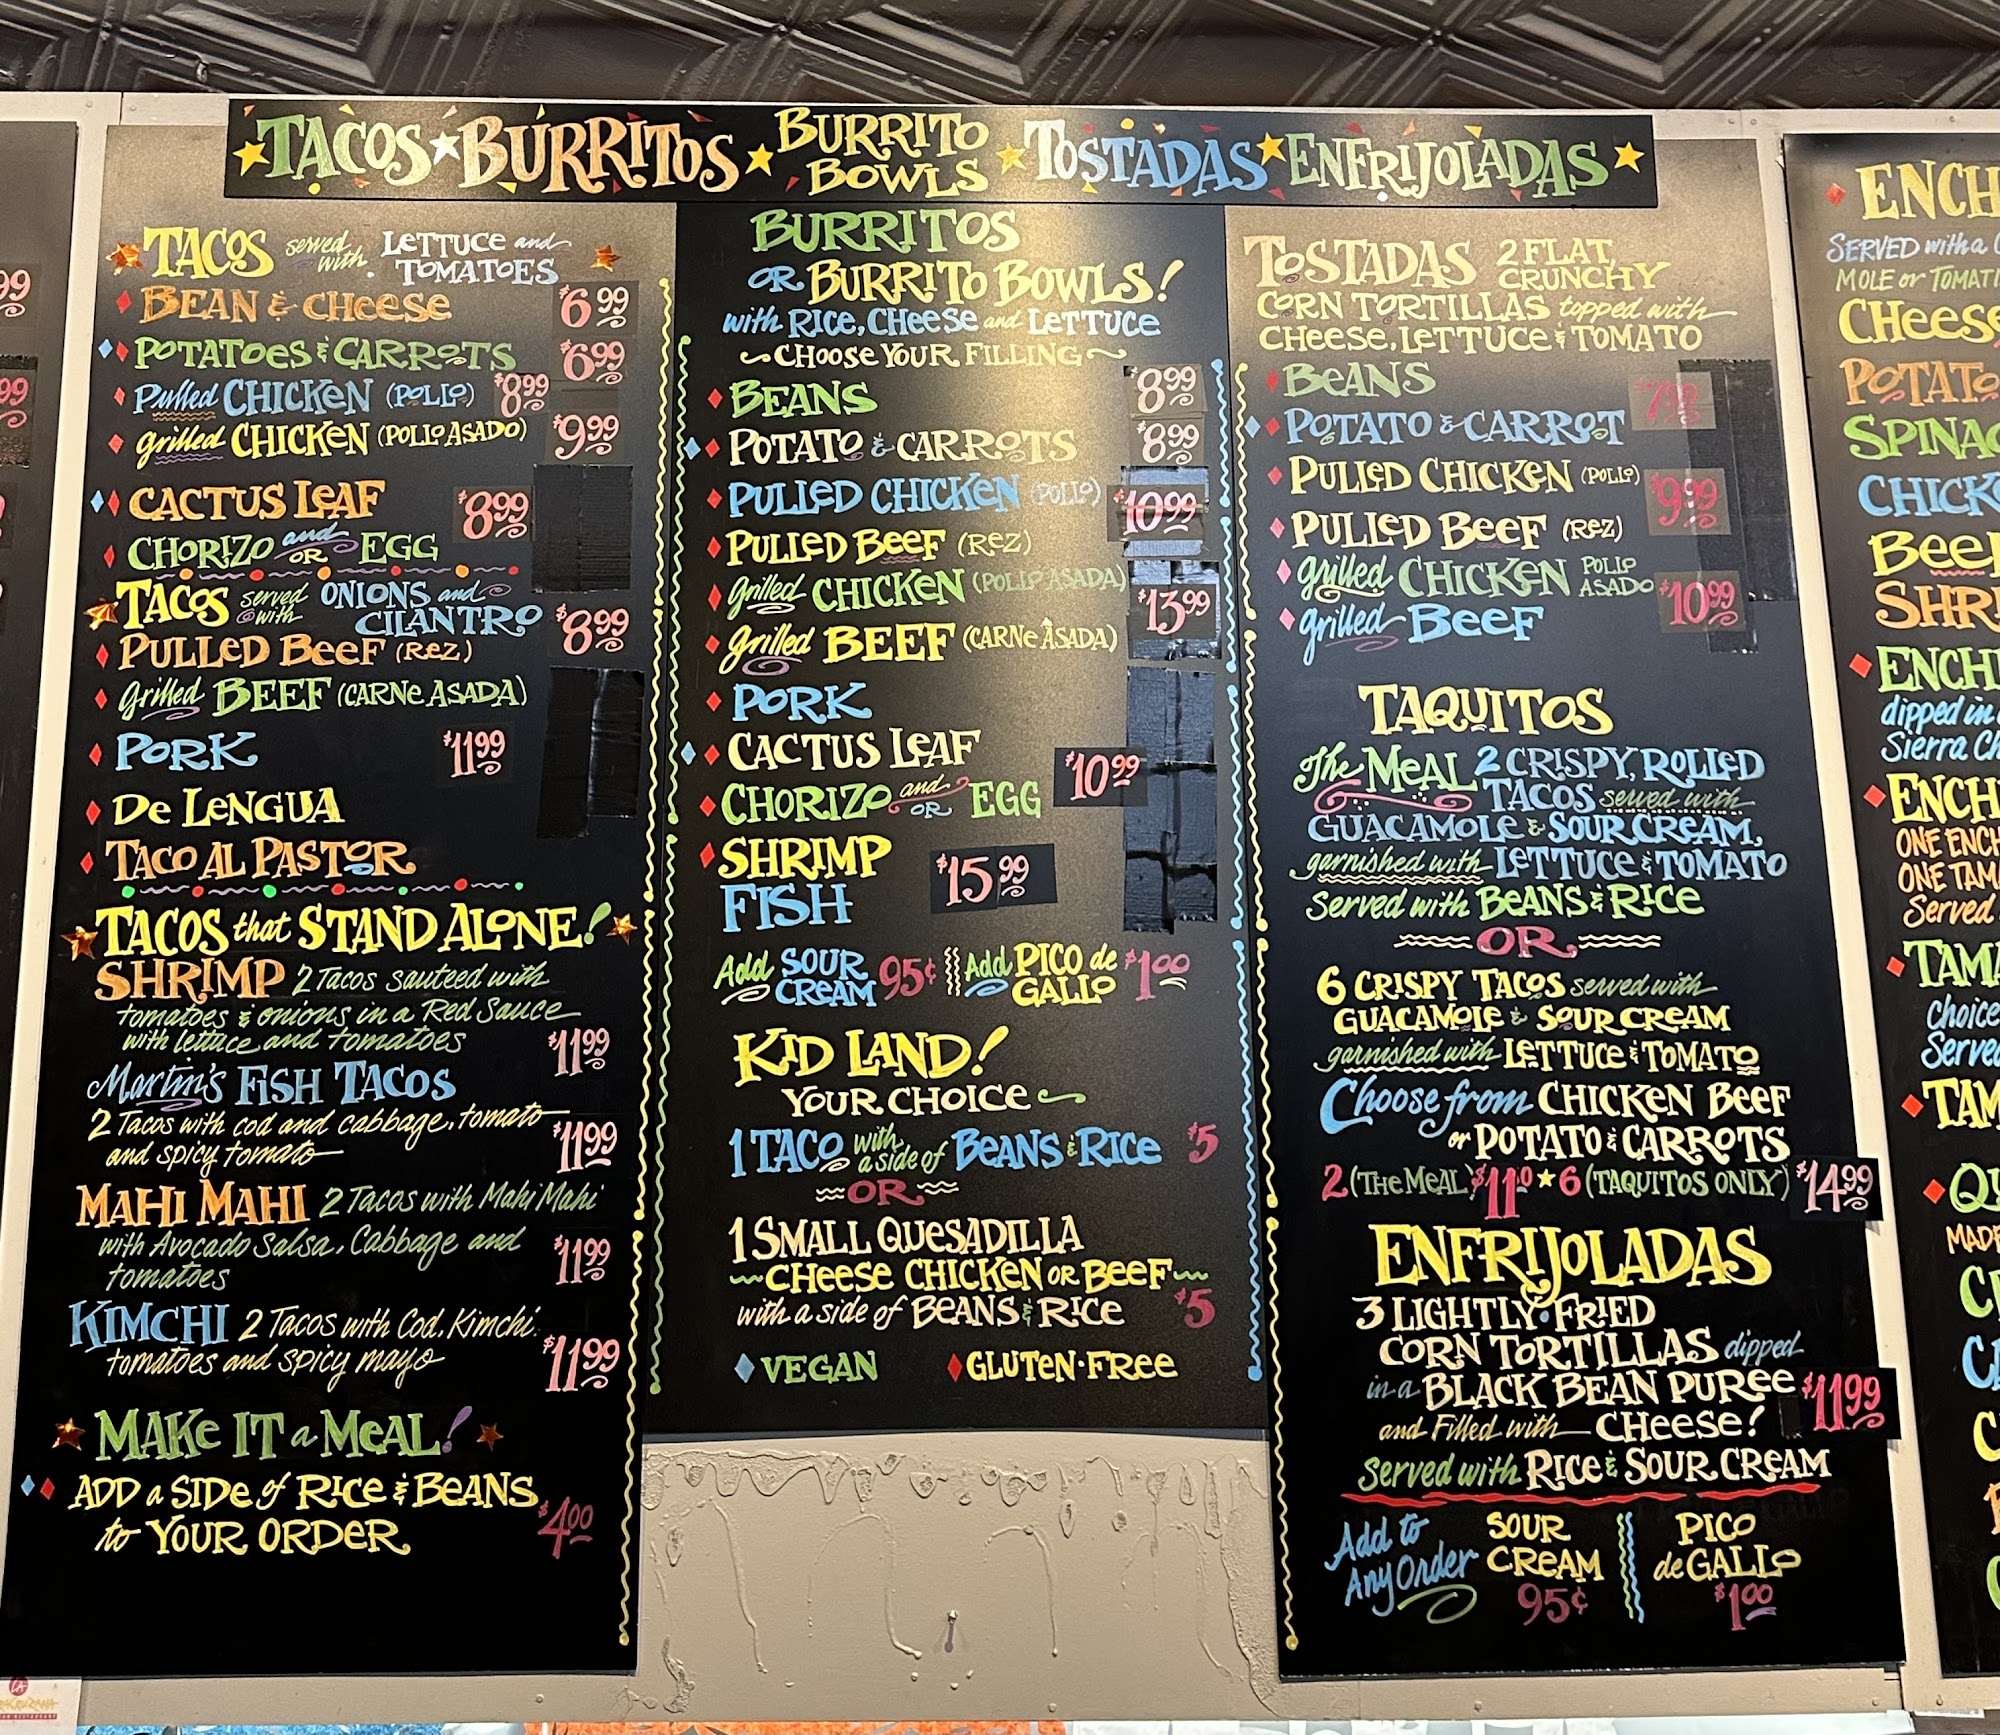 TACOS BURRITOS BURRITO BOWLS TOSTADAS ENFRIJOLADAS
TACOS served with LETTUCE and TOMATOES
BEAN & CHEESE $6.99
POTATOES & CARROTS $6.99
Pulled CHICKEN (POLLO) $8.99
grilled CHICKEN (POLLO ASADO) $9.99
CACTUS LEAF $8.99
CHORIZO and OR EGG
TACOS served with ONIONS and CILANTRO $8.99
PULLED BEEF (REZ)
Grilled BEEF (CARNE ASADA)
PORK $11.99
DE LENGUA
TACO AL PASTOR
TACOS that STAND ALONE!
SHRIMP 2 Tacos sauteed with
tomatoes & onions in a Red Sauce
with lettuce and tomatoes $11.99
Martin's FISH TACOS
2 Tacos with cod and cabbage, tomato
and spicy tomato $11.99
MAHI MAHI 2 Tacos with Mahi Mahi
with Avocado Salsa, Cabbage and
tomatoes $11.99
KIMCHI 2 Tacos with Cod, Kimchi,
tomatoes and spicy mayo $11.99
MAKE IT a MEAL!
ADD a SIDE of RICE & BEANS
to YOUR ORDER $4.00
BURRITOS
OR BURRITO BOWLS!
with RICE, CHEESE and LETTUCE
CHOOSE YOUR FILLING
BEANS $8.99
POTATO & CARROTS $8.99
PULLED CHICKEN (POLLO) $10.99
PULLED BEEF (REZ)
grilled CHICKEN (POLLO ASADA) $13.99
grilled BEEF (CARNE ASADA)
PORK
CACTUS LEAF $10.99
CHORIZO and OR EGG
SHRIMP $15.99
FISH
Add SOUR CREAM 95¢ Add PICO de GALLO $1.00
KID LAND!
YOUR CHOICE
1 TACO with a side of BEANS & RICE $5
OR
1 SMALL QUESADILLA
CHEESE CHICKEN OR BEEF
with a side of BEANS & RICE $5
VEGAN GLUTEN-FREE
TOSTADAS 2 FLAT, CRUNCHY
CORN TORTILLAS topped with
CHEESE, LETTUCE & TOMATO
BEANS $7.99
POTATO & CARROT
PULLED CHICKEN (POLLO) $9.99
PULLED BEEF (REZ)
grilled CHICKEN POLLO ASADO $10.99
grilled BEEF
TAQUITOS
The MEAL 2 CRISPY, ROLLED
TACOS served with
GUACAMOLE & SOUR CREAM,
garnished with LETTUCE & TOMATO
Served with BEANS & RICE
OR
6 CRISPY TACOS served with
GUACAMOLE & SOUR CREAM
garnished with LETTUCE & TOMATO
Choose from CHICKEN BEEF
or POTATO & CARROTS
2 (THE MEAL) 6 (TAQUITOS ONLY) $14.99
ENFRIJOLADAS
3 LIGHTLY-FRIED
CORN TORTILLAS dipped
in a BLACK BEAN PUREE $11.99
and Filled with CHEESE!
Served with RICE & SOUR CREAM
Add to Any Order
SOUR CREAM 95¢
PICO de GALLO $1.00
SERVED with a
MOLE or
POTATO
dipped in
ONE
ONE
Served
Choice